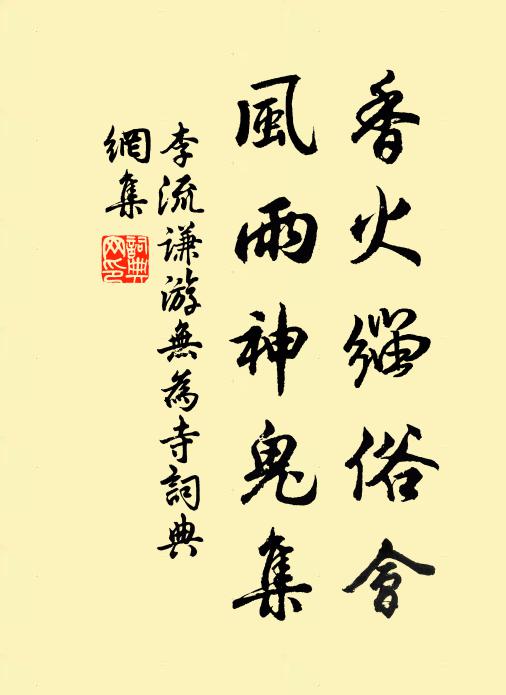 香火緇俗會
風雨神鬼集
李流謙游無為寺詞典
網集
詞典
网印